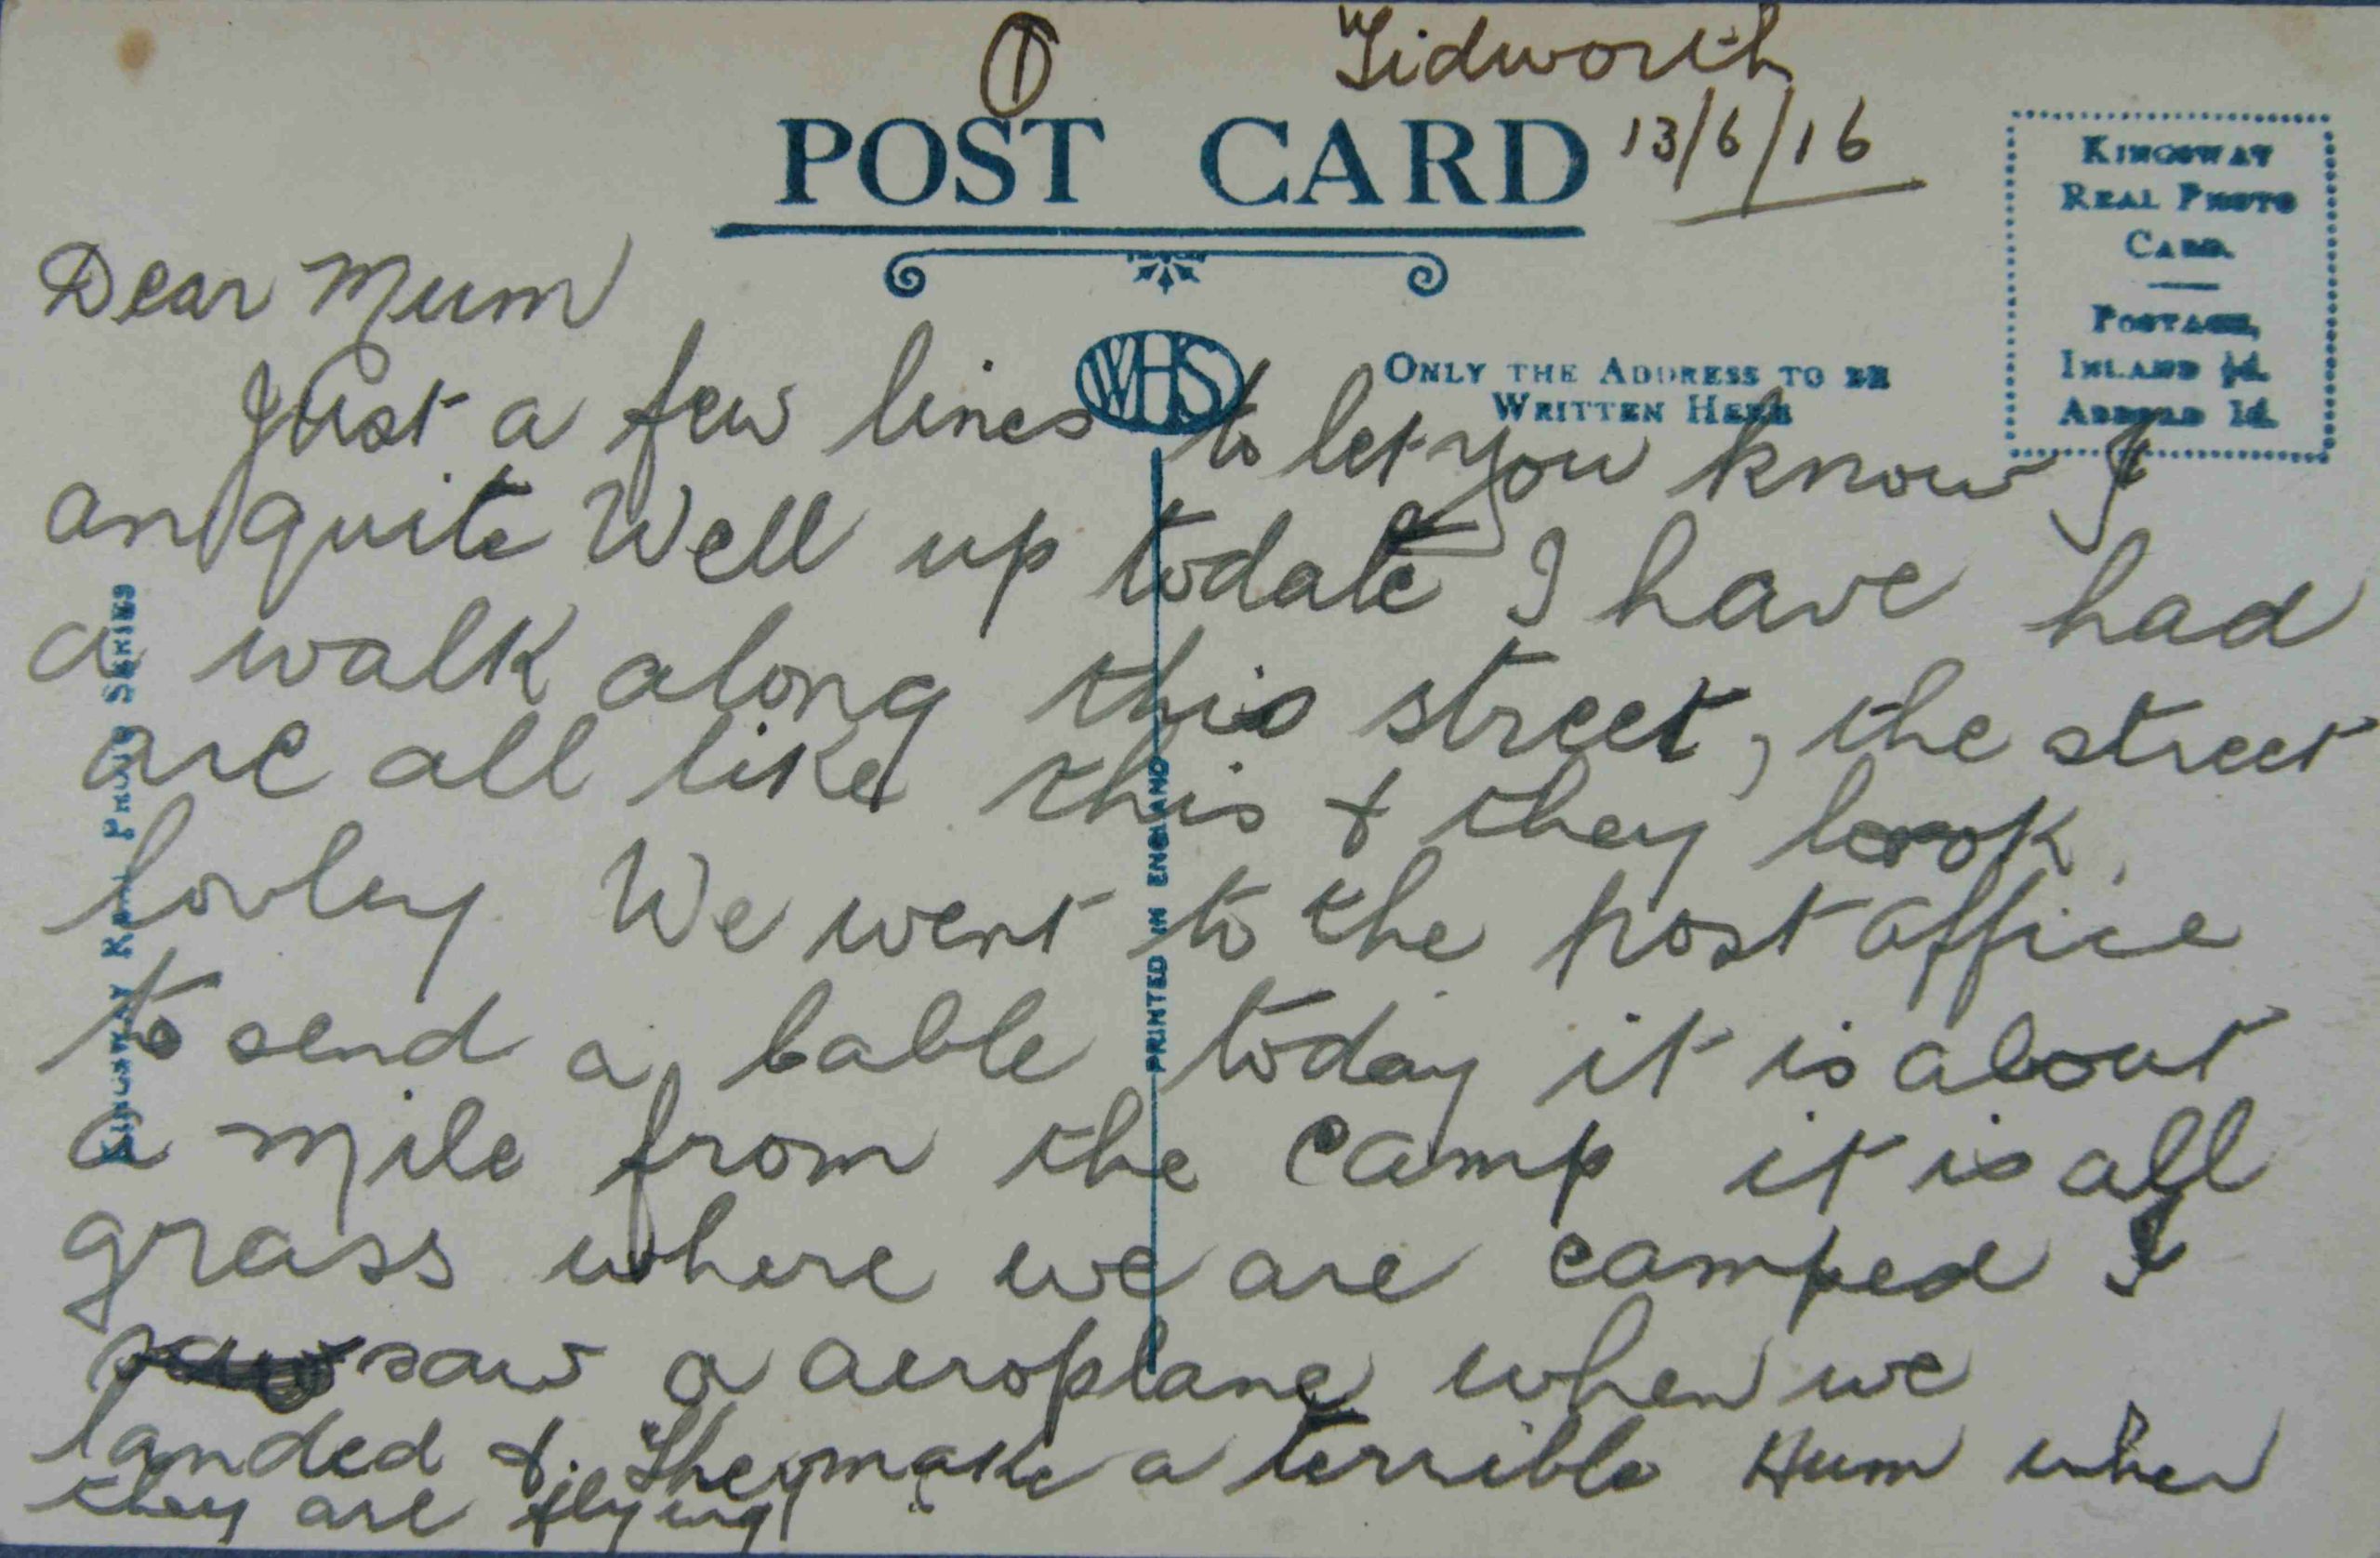 ①
Tidworth
13/6/16
POST CARD
KINGSWAY
REAL PHOTO
CARD.
POSTAGE,
INLAND ½d.
ABROAD 1d.
WHS
ONLY THE ADDRESS TO BE
WRITTEN HERE
KINGSWAY REAL PHOTO SERIES
PRINTED IN ENGLAND
Dear Mum
Just a few lines to let you know I
am quite Well up todate I have had
a walk along this street, the street
are all like this & they look
lovley We went to the post office
to send a cable today it is about
a mile from the camp it is all
grass where we are camped I
saw saw a aeroplane when we
landed & They make a terrible Hum when
they are flying